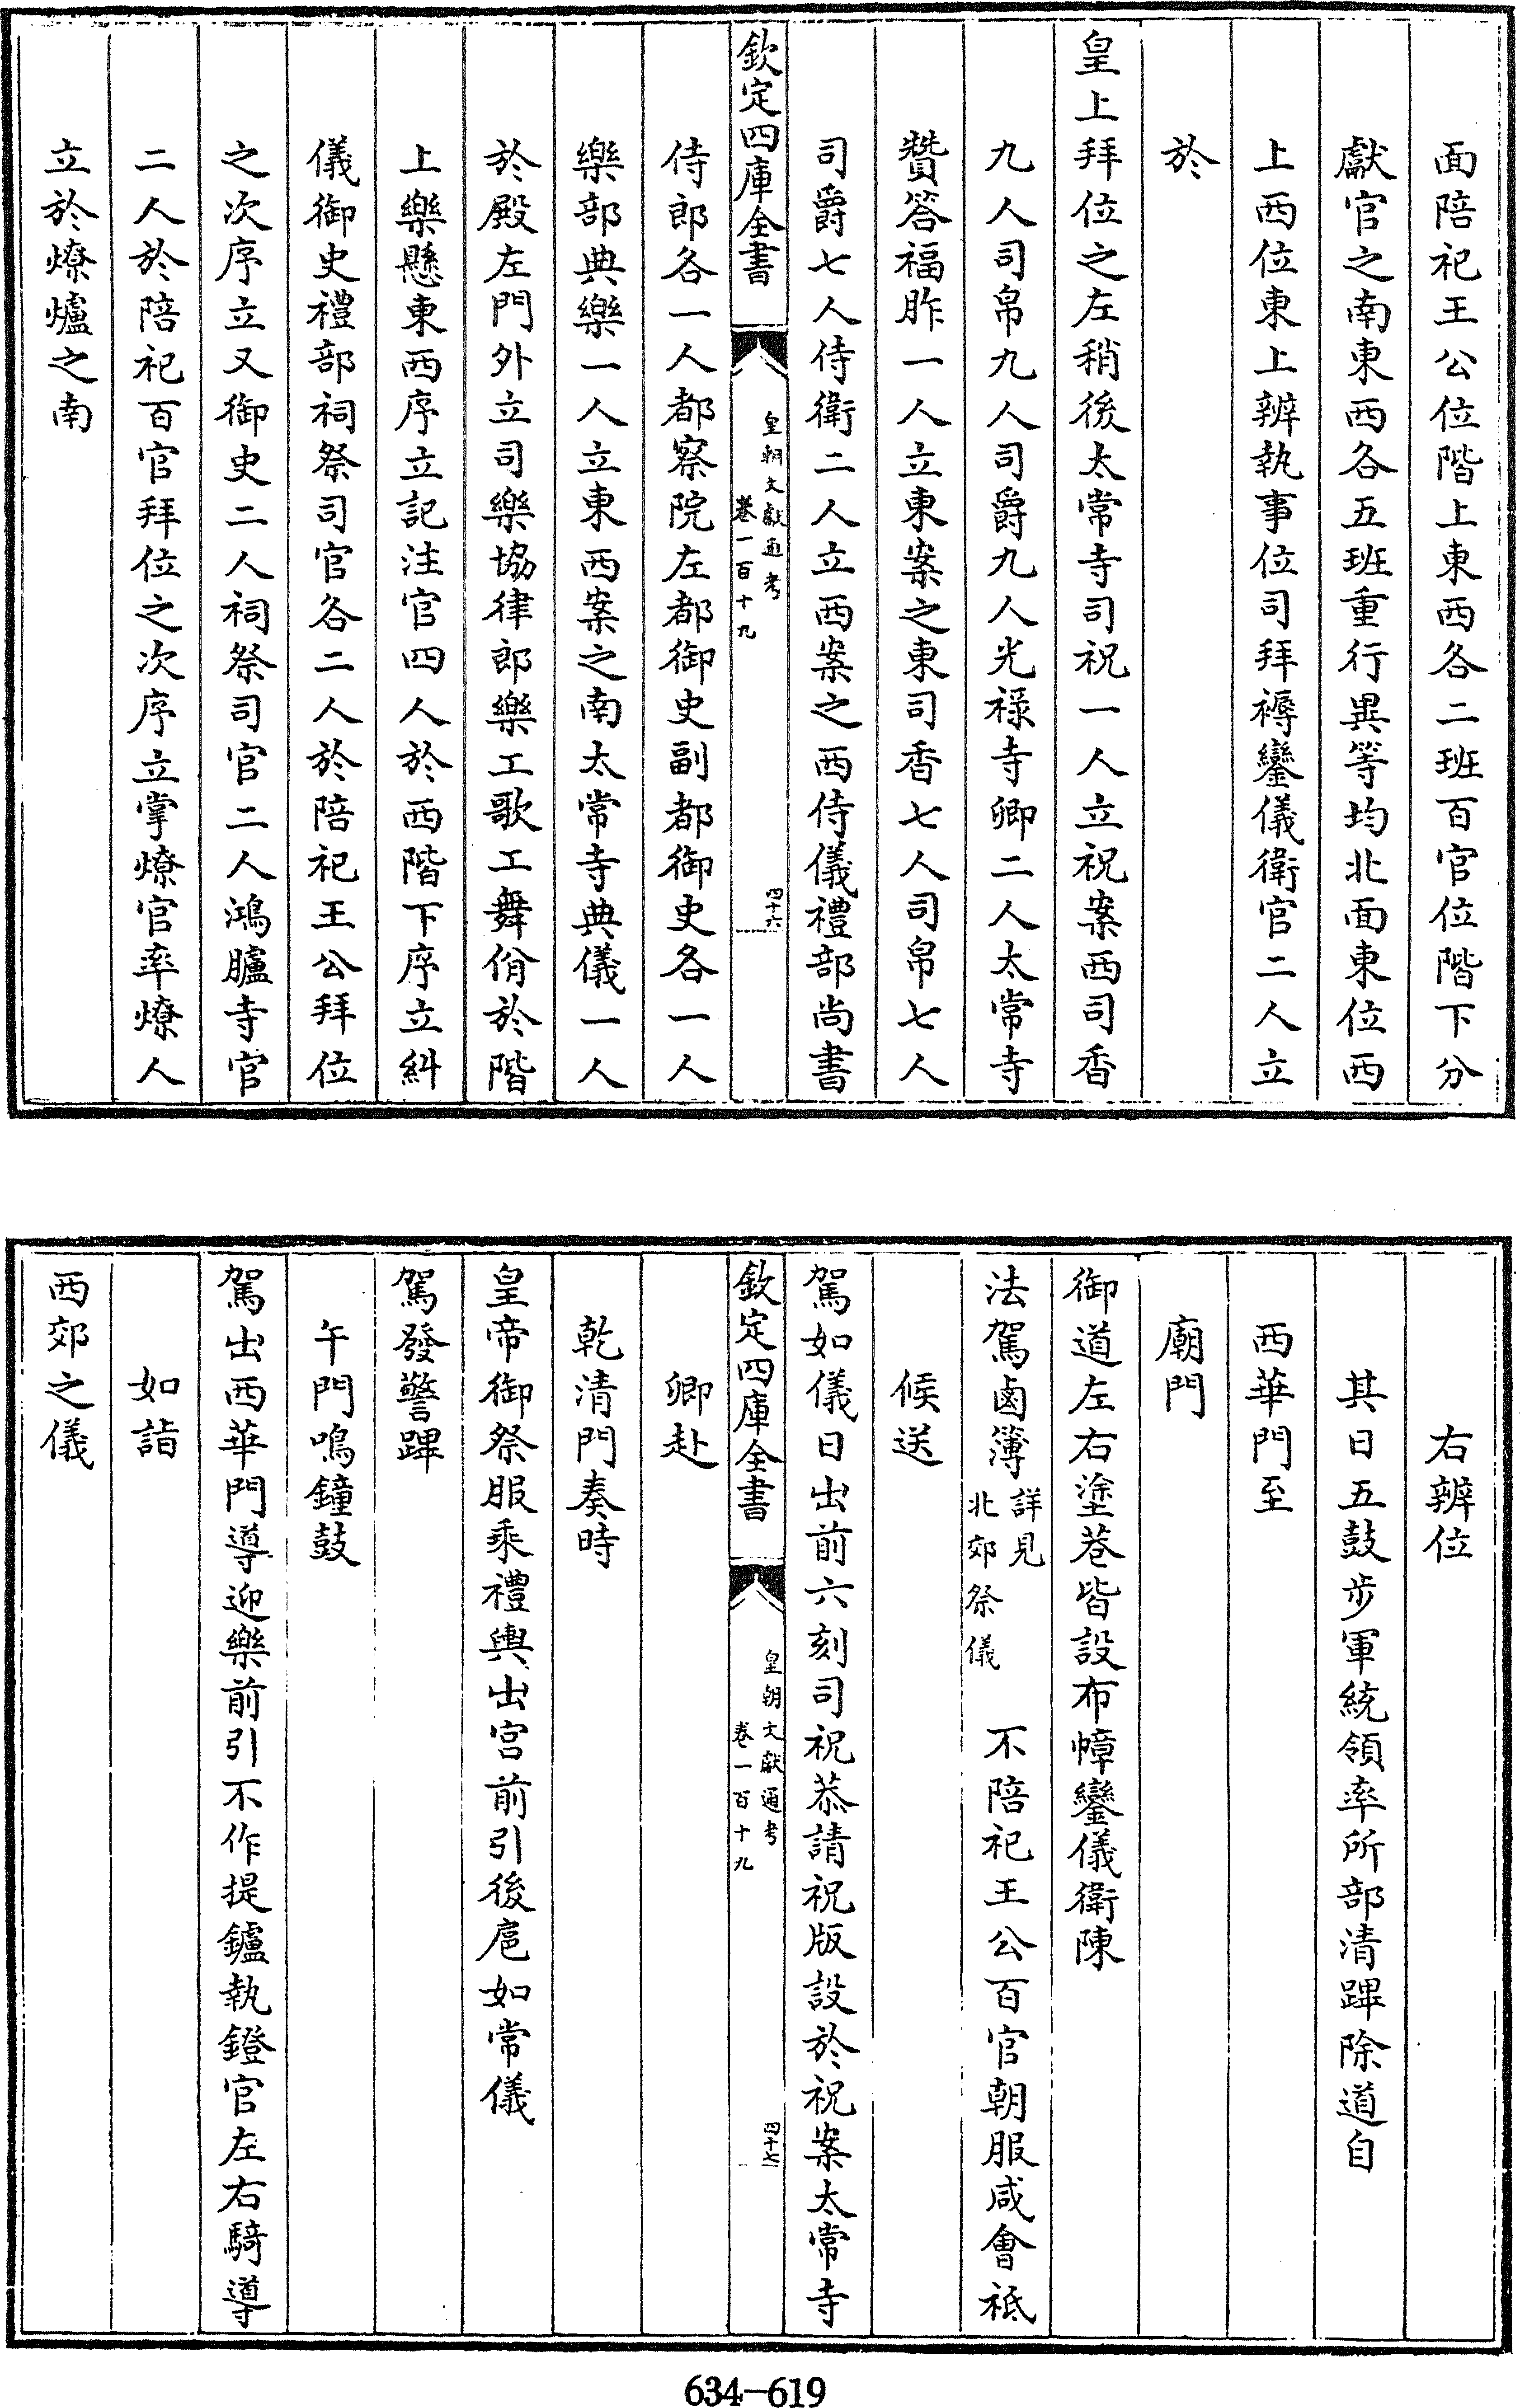 面陪祀王公位階上東西各二班百官位階下分
獻官之南東西各五班重行異等均北面東位西
上西位東上辨執事位司拜褥鑾儀衛官二人立
於
皇上拜位之左稍後太常寺司祝一人立祝案西司香
九人司帛九人司爵九人光祿寺卿二人太常寺
贊答福胙一人立東案之東司香七人司帛七人
司爵七人侍衛二人立西案之西侍儀禮部尚書
欽定四庫全書
皇朝文獻通考
卷一百十九
四十六
侍郎各一人都察院左都御史副都御史各一人
樂部典樂一人立東西案之南太常寺典儀一人
於殿左門外立司樂協律郎樂工歌工舞佾於階
上樂懸東西序立記注官四人於西階下序立糾
儀御史禮部祠祭司官各二人於陪祀王公拜位
之次序立又御史二人祠祭司官二人鴻臚寺官
二人於陪祀百官拜位之次序立掌燎官率燎人
立於燎爐之南
右辨位
其日五鼓步軍統領率所部清蹕除道自
西華門至
廟門
御道左右塗巷皆設布幛鑾儀衛陳
法駕鹵簿詳見北郊祭儀不陪祀王公百官朝服咸會祗
候送
駕如儀日出前六刻司祝恭請祝版設於祝案太常寺
欽定四庫全書
皇朝文獻通考
卷一百十九
四十七
卿赴
乾清門奏時
皇帝御祭服乘禮輿出宮前引後扈如常儀
駕發警蹕
午門鳴鐘鼓
駕出西華門導迎樂前引不作提鑪執鐙官左右騎導
如詣
西郊之儀
634-619